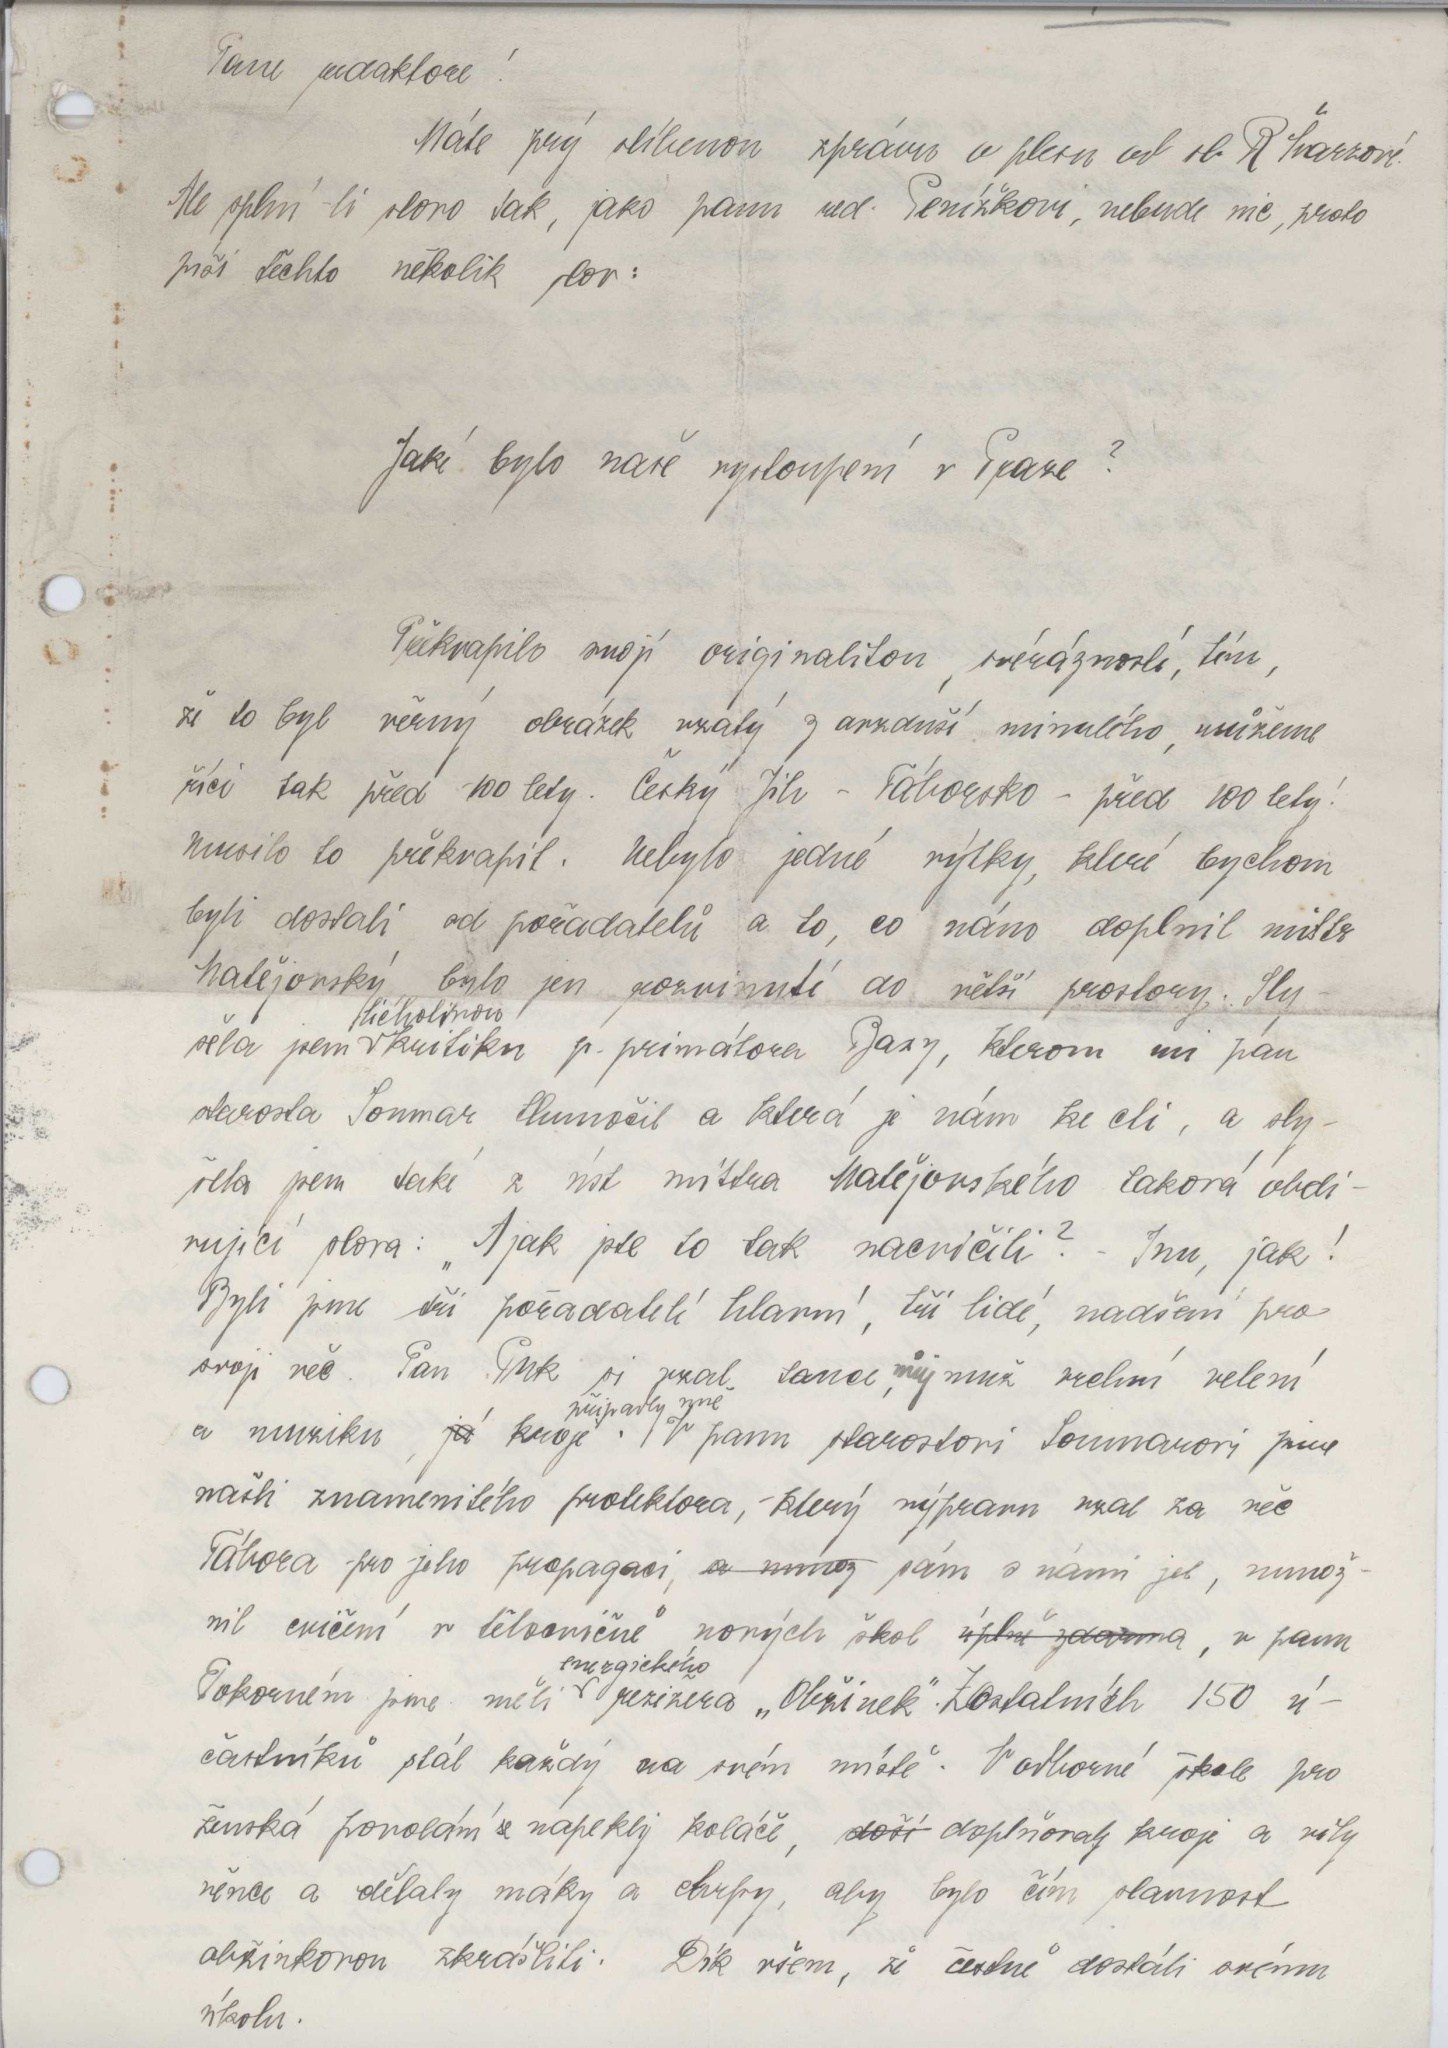 Pane redaktore!
Máte prý slíbenou zprávu o plesu od sl. R Švarzové.
Ale splní-li slovo tak, jako panu red. Peníškovi, nebude nic, proto
píši těchto několik slov:
Jaké bylo naše vystoupení v Praze?
Překvapilo svojí originalitou, svérázností, tím,
že to byl věrný obrázek vzatý z ovzduší minulého, můžeme
říci tak před 100 lety. Český Jih - Táborsko - před 100 lety!
Musilo to překvapit. Nebylo jedné výtky, které bychom
byli dostali od pořadatelů a to, co námo doplnil mistr
Matějovský bylo jen rozvinutí do větší prostory. Sly-
šela jsem lichotivou kritiku p. primátora Baxy, kterou mi pan
starosta Soumar tlumočil a která je nám ke cti, a sly-
šela jsem také z úst mistra Matějovského taková obdi-
vující slova: „A jak jste to tak nacvičili? - Inu, jak!
Byli jsme tři pořadatelé hlavní, tři lidé, nadšení pro
svoji věc. Pan si vzal tance, můj muž vrchní velení
a muziku, já kroje připadly mně. V panu starostovi Soumarovi jsme
našli znamenitého protektora, který výpravu vzal za věc
Tábora pro jeho propagaci, a umož sám s námi jel, umož-
nil cvičení v tělocvičně nových škol úplně zdarma, v panu
Pokorném jsme měli energického režiséra „Obžinek". Z ostatních 150 ú-
častníků stál každý na svém místě. V odborné škole pro
ženská povolání se napekly koláče, doší doplňovaly kroje a vily
věnce a dělaly máky a chrpy, aby bylo čím slavnost
obžinkovou zkrášliti. Dík všem, že čestně dostáli svému
úkolu.